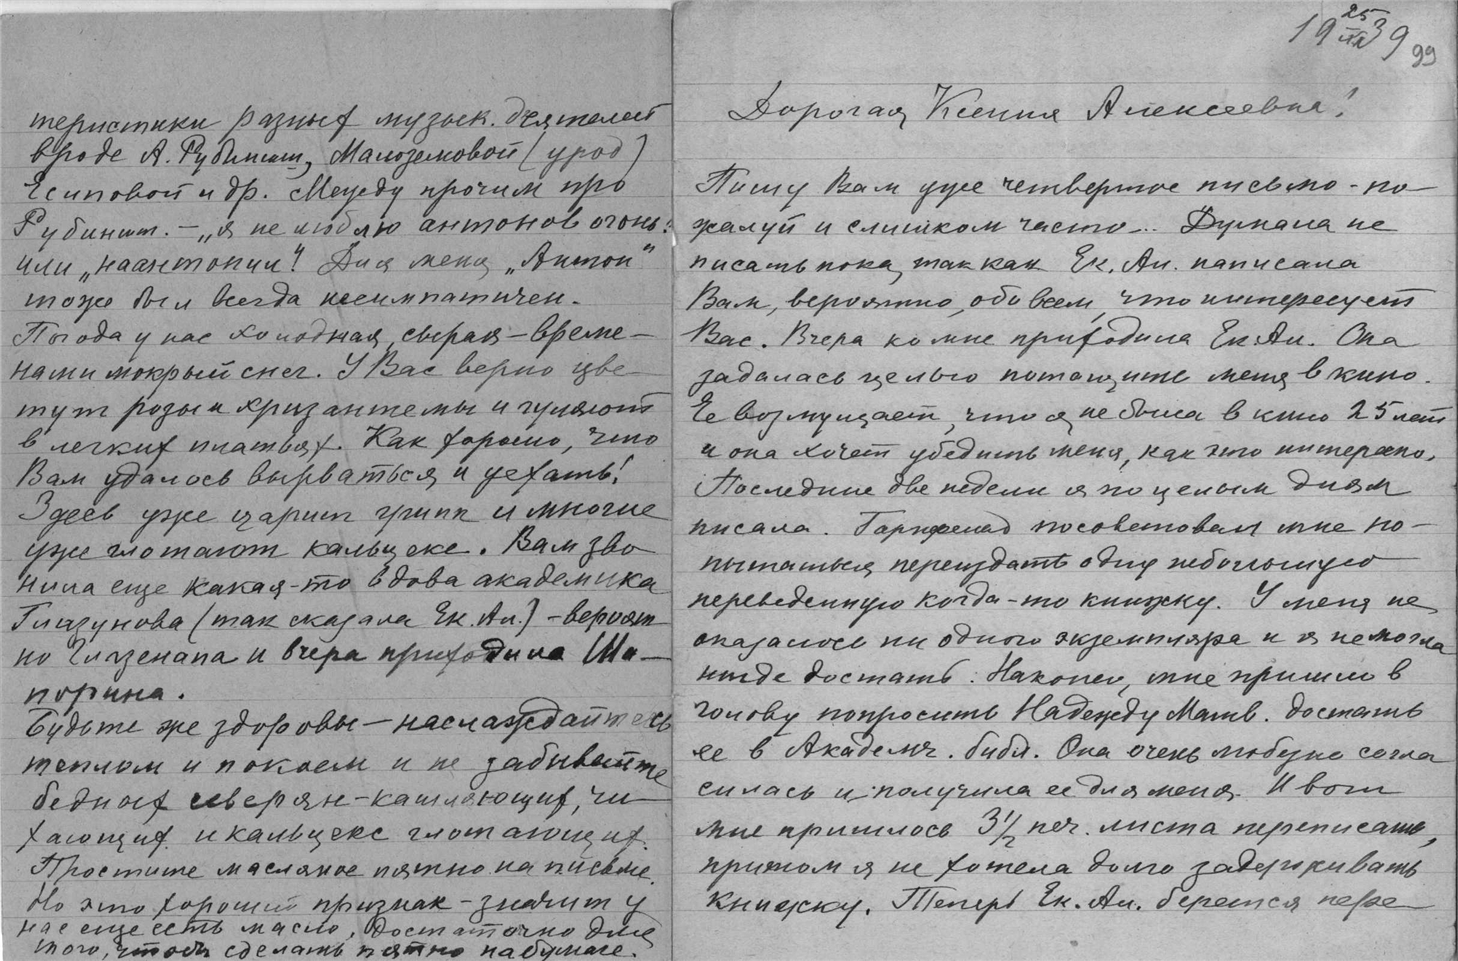 теристики разных музык. деятелей
вроде А. Рубиншт., Малоземовой (урод)
Есиповой и др. Между прочим про
Рубиншт. – „я не люблю антонов огонь"
или „наантонил"! Для меня „Антон"
тоже был всегда несимпатичен.
Погода у нас холодная, сырая – време–
нами мокрый снег. У Вас верно цве
тут розы и хризантемы и гуляют
в легких платьях. Как хорошо, что
Вам удалось вырваться и уехать!
Здесь уже царит грипп и многие
уже глотают кальцекс. Вам зво
нила еще какая-то вдова академика
Глазунова (так сказала Ек. Ал.) – вероят
но Глазенапа и вчера приходила Ша–
порина.
Будьте же здоровы – наслаждайтесь
теплом и покоем и не забывайте
бедных северян – кашляющих, чи
хающих и кальцекс глотающих.
Простите масляное пятно на письме.
Но это хороший признак – значит у
нас еще есть масло, достаточно для
того, чтобы сделать пятно на бумаге.
19 25/XI 39
99
Дорогая Ксения Алексеевна!
Пишу Вам уже четвертое письмо – по–
жалуй и слишком часто... Думала не
писать пока, так как Ек. Ал. написала
Вам, вероятно, обо всем, что интересует
Вас. Вчера ко мне приходила Ек. Ал. Она
задалась целью потащить меня в кино.
Ее возмущает, что я не была в кино 25 лет
и она хочет убедить меня, как это интересно.
Последние две недели я по целым дням
писала. посоветовал мне по–
пытаться переиздать одну небольшую
переведенную когда-то книжку. У меня не
оказалось ни одного экземпляра и я не могла
нигде достать. Наконец, мне пришло в
голову попросить Надежду Матв. достать
ее в Академич. библ. Она очень любезно согла
силась и получила ее для меня. И вот
мне пришлось 3½ печ. листа переписать,
притом я не хотела долго задерживать
книжку. Теперь Ек. Ал. берется пере